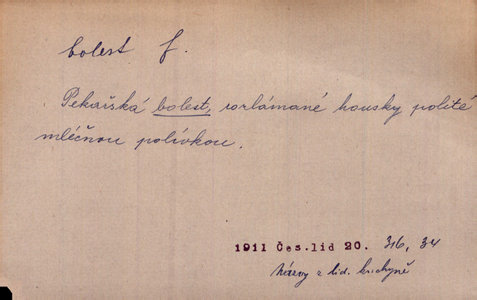 bolest f.
Pekařská bolest, rozlámané housky polité
mléčnou polívkou.
1911 Čes.lid 20. 316, 34
Názvy z lid. kuchyně